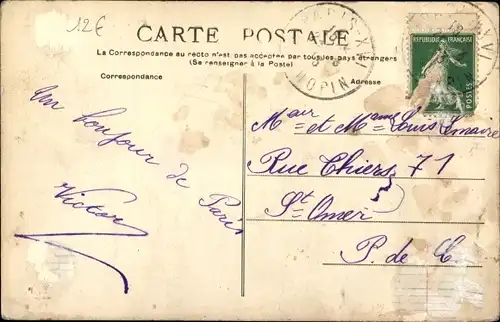 12€
CARTE POSTALE
La Correspondance au recto n'est pas acceptée par tous les pays étrangers
(Se renseigner à la Poste)
Correspondance
Adresse
PARIS-XVI
CHOPIN
REPUBLIQUE FRANÇAISE
POSTES
Un bonjour de Paris
Victor
et Mme Louis Lemaire
Rue Thiers 71
St Omer
P. de C.